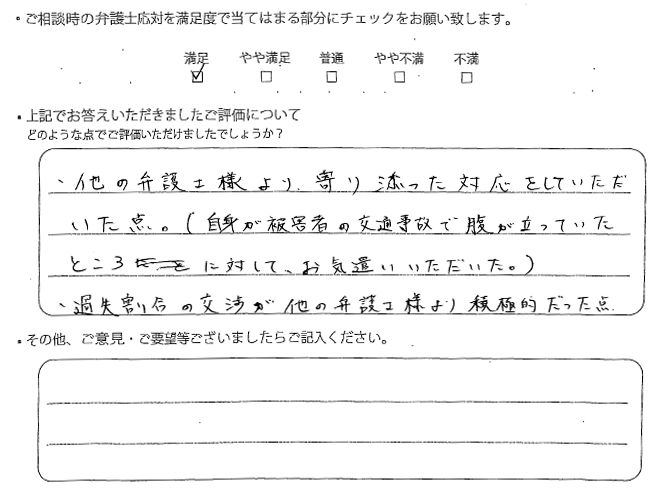 ・ご相談時の弁護士応対を満足度で当てはまる部分にチェックをお願い致します。
満足 やや満足 普通 やや不満 不満
☑ □ □ □ □
・上記でお答えいただきましたご評価について
どのような点でご評価いただけましたでしょうか？
・他の弁護士様より、寄り添った対応をしていただ
いた点。(自身が被害者の交通事故で腹が立っていた
ところ に対して、お気遣いいただいた。)
・過失割合の交渉が他の弁護士様より積極的だった点
・その他、ご意見・ご要望等ございましたらご記入ください。